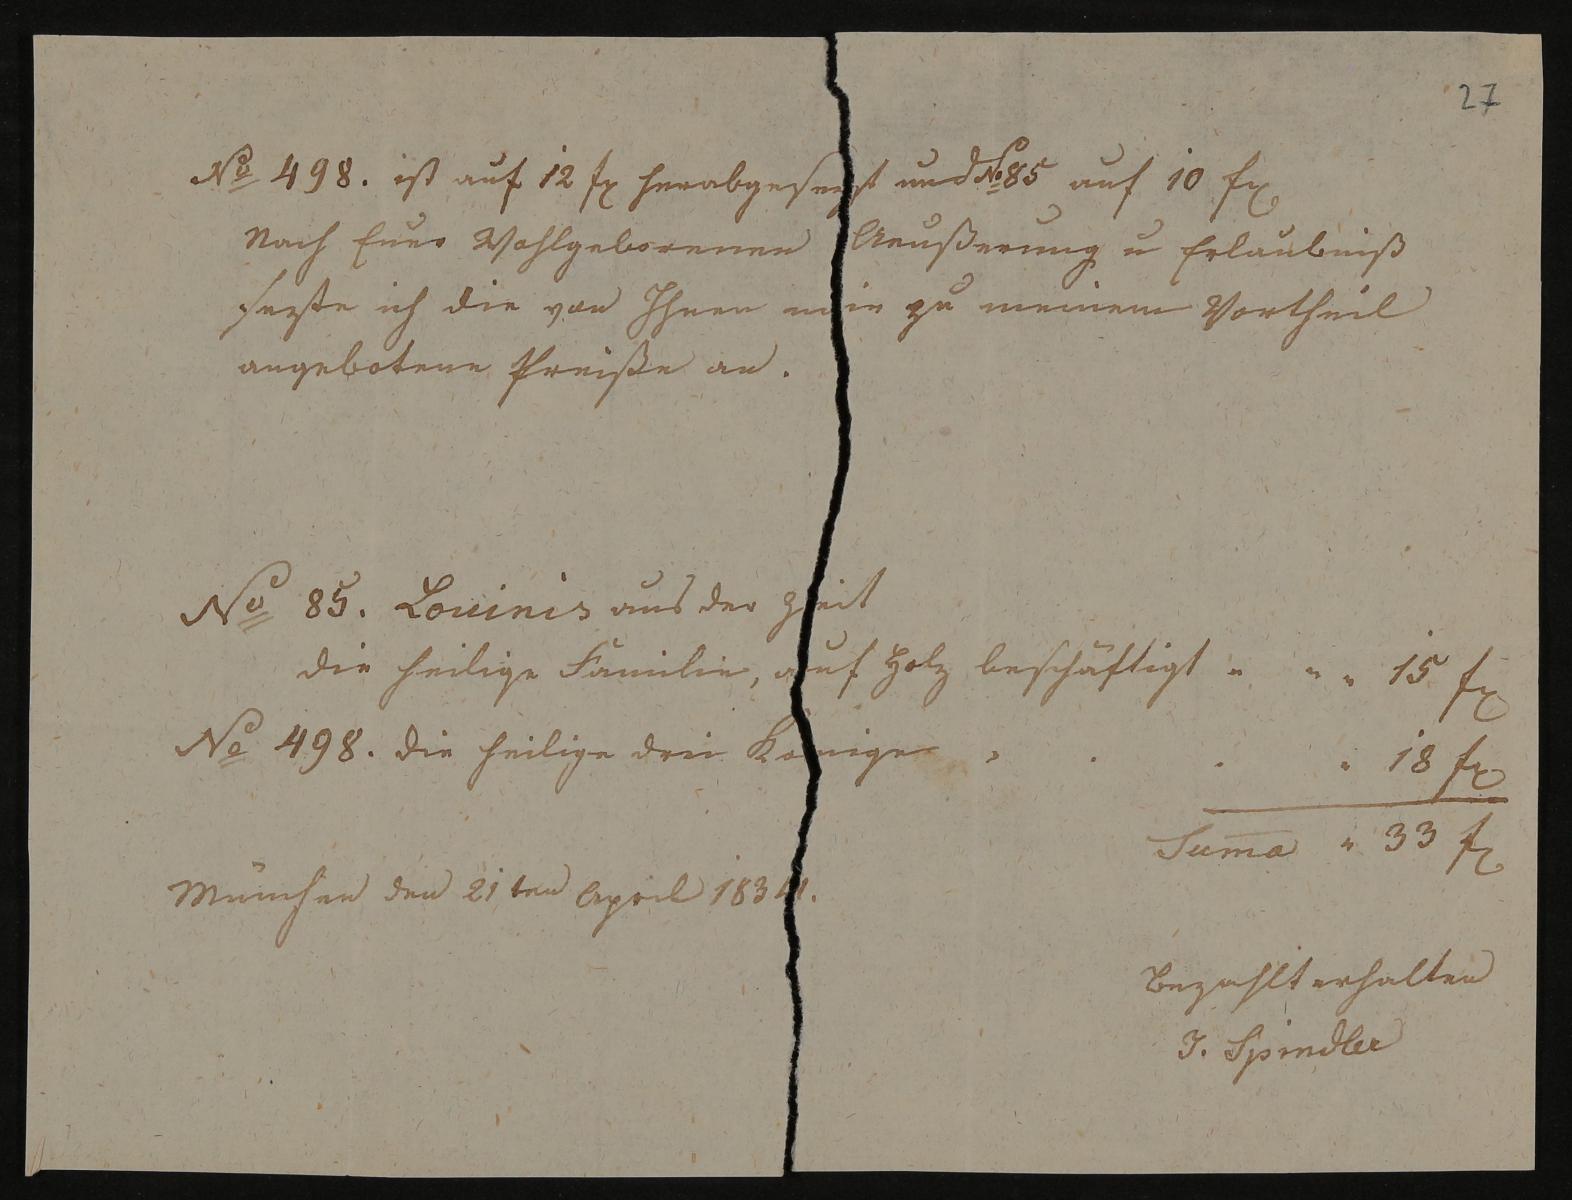 27
No 498. ist auf 12 fx herabgesezt und No 85 auf 10 fx
Nach Euer Wohlgeborenen Aeußerung u Erlaubniß
sezte ich die von Ihnen mir zu meinem Vortheil
angebotene Preiße an.
No 85. Louinis aus der Zeit
die heilige Familie, auf Holz beschäftigt " " " 15 fx
No 498. die heilige drei Könige " . . " 18 fx
Suma " 33 fx
München den 21ten April 1834.
bezahlt erhalten
J. Spindler